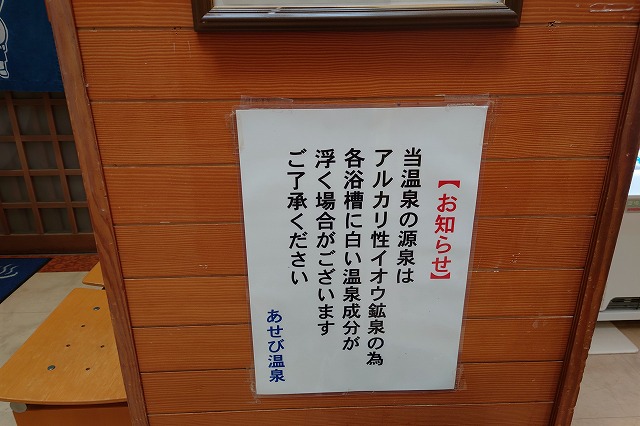 【お知らせ】
当温泉の源泉は
アルカリ性イオウ鉱泉の為
各浴槽に白い温泉成分が
浮く場合がございます
ご了承ください
あせび温泉